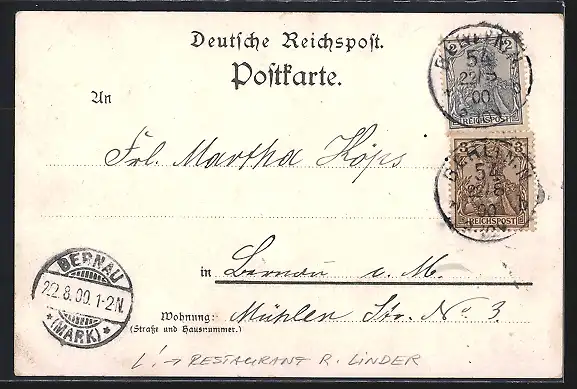 Deutsche Reichspost.
Postkarte.
An
Frl. Martha Köps
in Bernau i. M.
Wohnung: Mühlen Str. No 3
(Straße und Hausnummer.)
2 2
REICHSPOST
BERLIN N
54
22/8
00
3 3
REICHSPOST
BERLIN N
54
22/8
00
BERNAU
22.8.00.1-2N.
* (MARK) *
L! → RESTAURANT R. LINDER